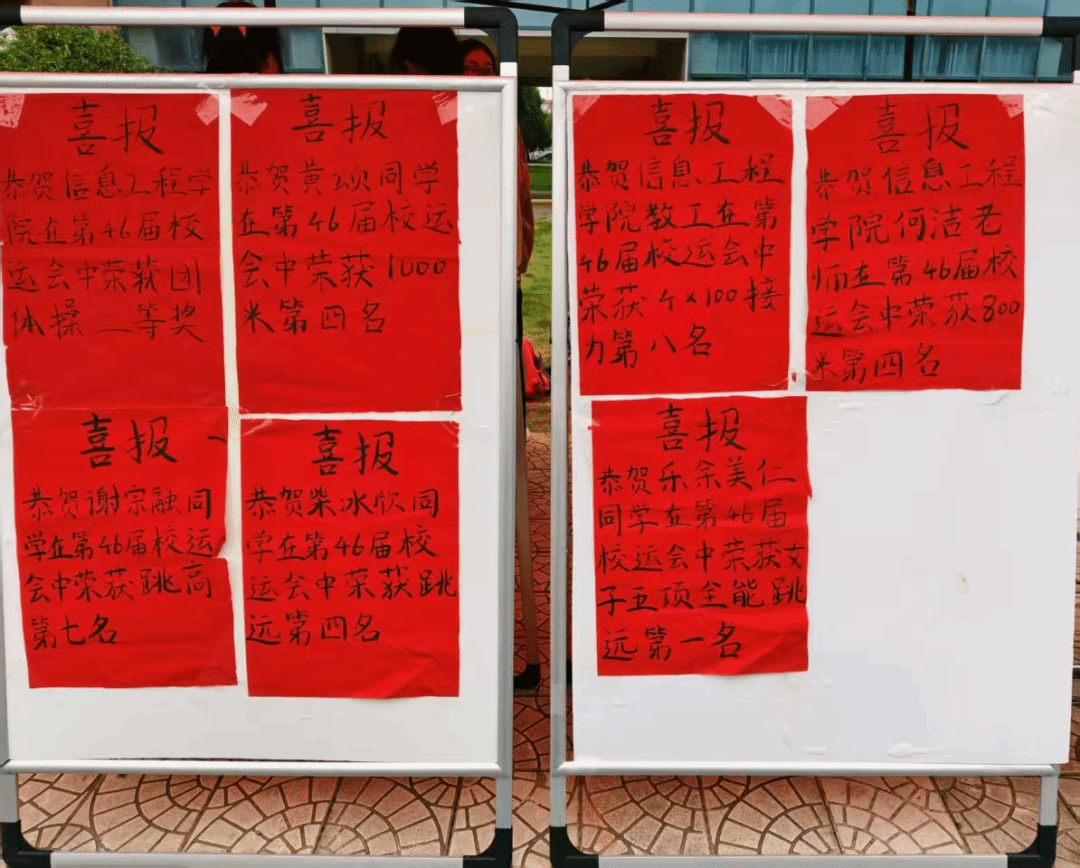 喜报
恭贺信息工程学
院在第46届校
运会中荣获团
体操二等奖
喜报
恭贺黄颂同学
在第46届校运
会中荣获1000
米第四名
喜报
恭贺谢宗融同
学在第46届校运
会中荣获跳高
第七名
喜报
恭贺柴冰欣同
学在第46届校
运会中荣获跳
远第四名
喜报
恭贺信息工程
学院教工在第
46届校运会中
荣获4×100接
力第八名
喜报
恭贺信息工程
学院何洁老
师在第46届校
运会中荣获800
米第四名
喜报
恭贺乐余美仁
同学在第46届
校运会中荣获女
子五项全能跳
远第一名